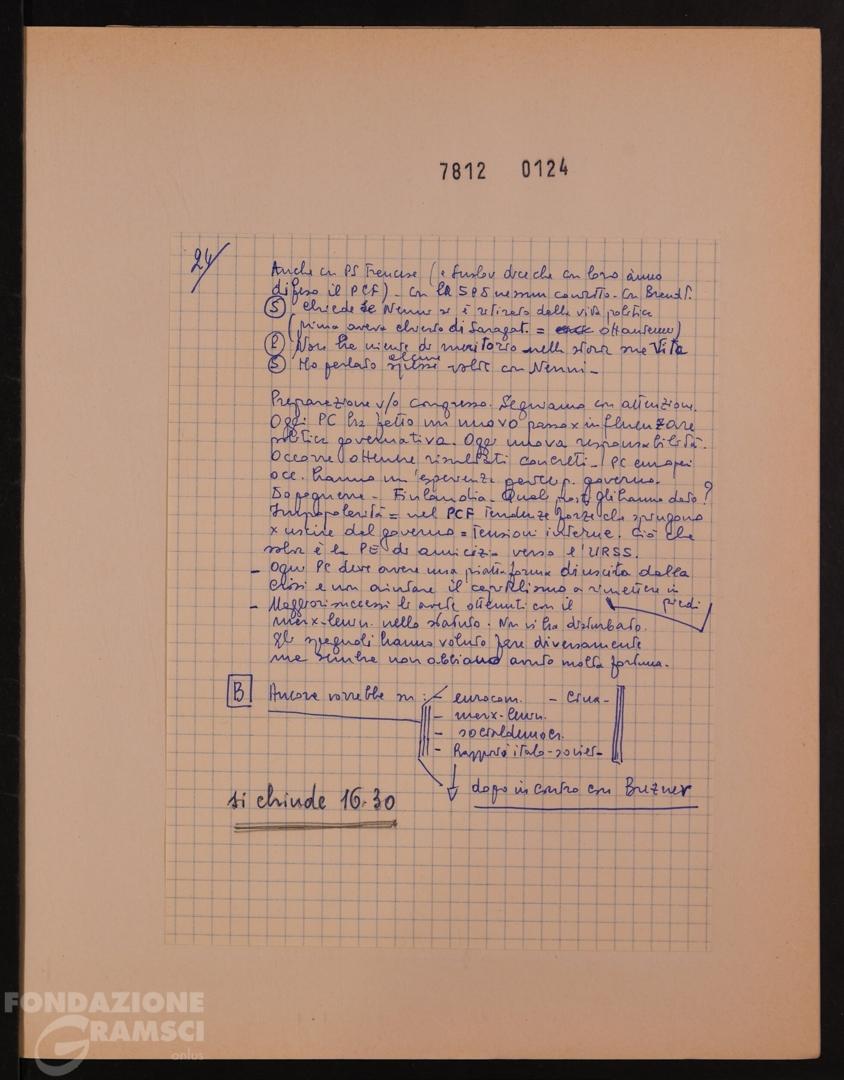 7812 0124
24/
Anche con PS francese (e Suslov dice che con loro hanno
difeso il PCF) - Con la SPD nessun contatto. Con Brandt.
(S) Chiede se Nenni si è ritirato dalla vita politica
(prima aveva chiesto di Saragat. = ottantenne)
(P) Non ha niente di meritorio nella storia sua vita
(S) Ho parlato alcune volte con Nenni -
Preparazione v/o congresso. Seguiamo con attenzione.
Oggi PC ha fatto un nuovo passo x influenzare
politica governativa. Oggi nuova responsabilità.
Occorre ottenere risultati concreti - PC europei
occ. hanno un'esperienza partecip. governo.
Dopoguerra - Finlandia. Quali posti gli hanno dato?
Impopolarità = nel PCF tendenze forze che spingono
x uscire dal governo = tensioni interne. Ciò che
salva è la PE di amicizia verso l'URSS.
- Ogni PC deve avere una piattaforma di uscita dalla
crisi e non aiutare il capitalismo a rimettersi in
piedi
- Maggiori successi li avete ottenuti con il
marx-lenin. nello statuto. Non vi ha disturbato.
Gli spagnoli hanno voluto fare diversamente
ma sembra non abbiano avuto molta fortuna.
[B] Ancora vorrebbe su: - eurocom. - Cina -
- marx-lenin.
- socialdemocr.
- Rapporti italo-soviet -
dopo incontro con Breznev
si chiude 16.30
FONDAZIONE
GRAMSCI
onlus